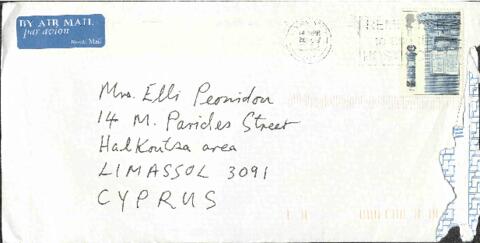 BY AIR MAIL
par avion
Royal Mail
Mrs. Elli Peonidou
14 M. Parides Street
Halkoutsa area
LIMASSOL 3091
CYPRUS